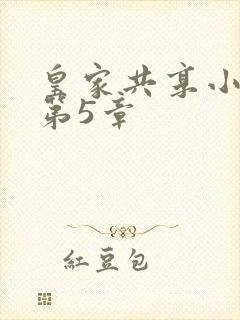 皇家共享小
第5章
紅豆包